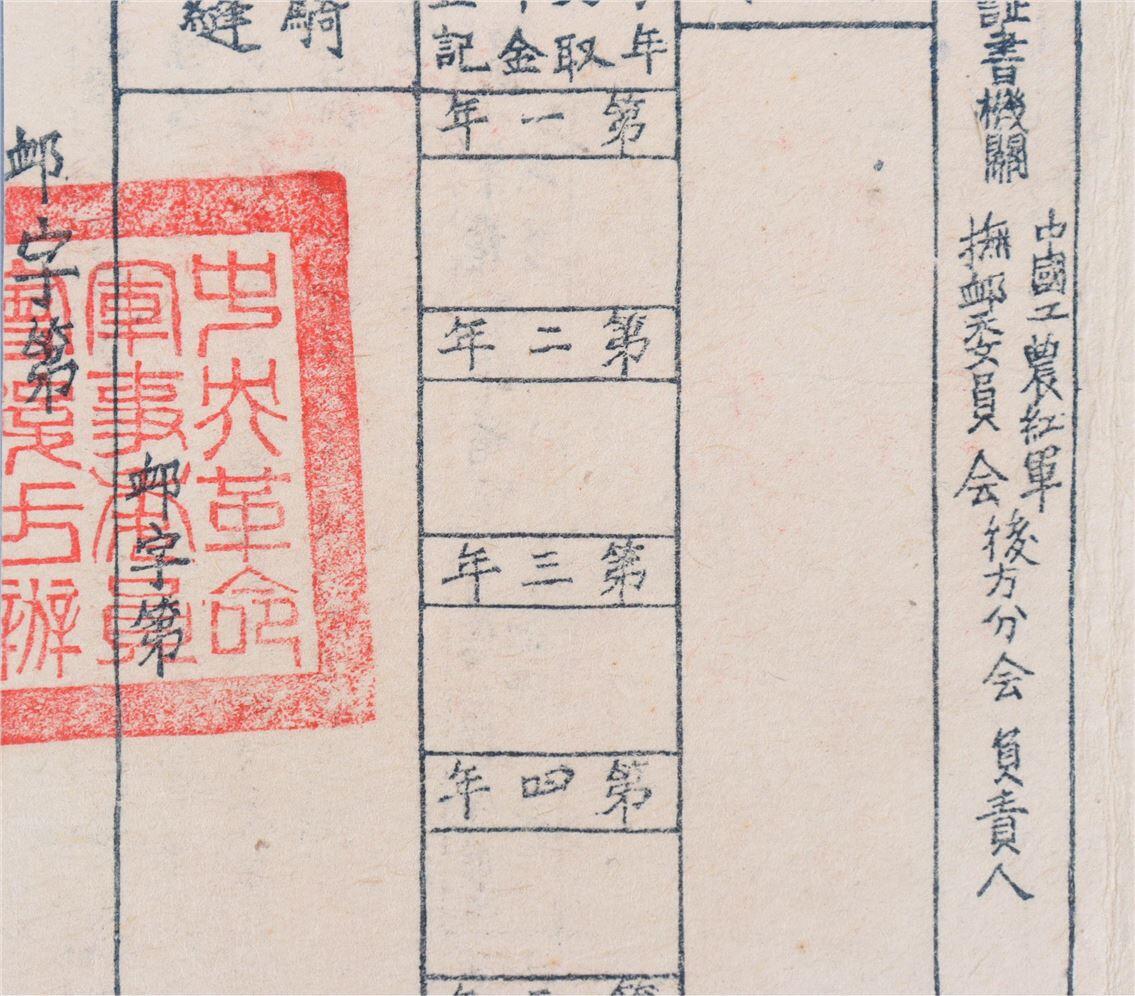 証書機關
中國工農紅軍
撫卹委員会後方分会負責人
年取金記
第一年
第二年
第三年
第四年
第
年
騎
縫
卹字第
卹字第
中央革命
軍事委員
會後方辦